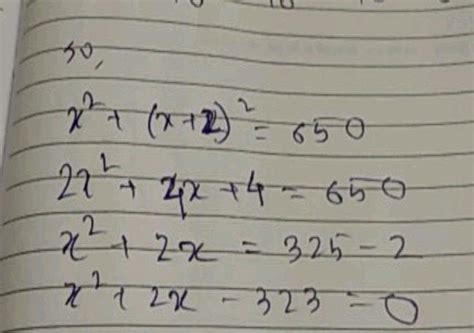 so,
x² + (x+2)² = 650
2x² + 4x + 4 = 650
x² + 2x = 325 - 2
x² + 2x - 323 = 0